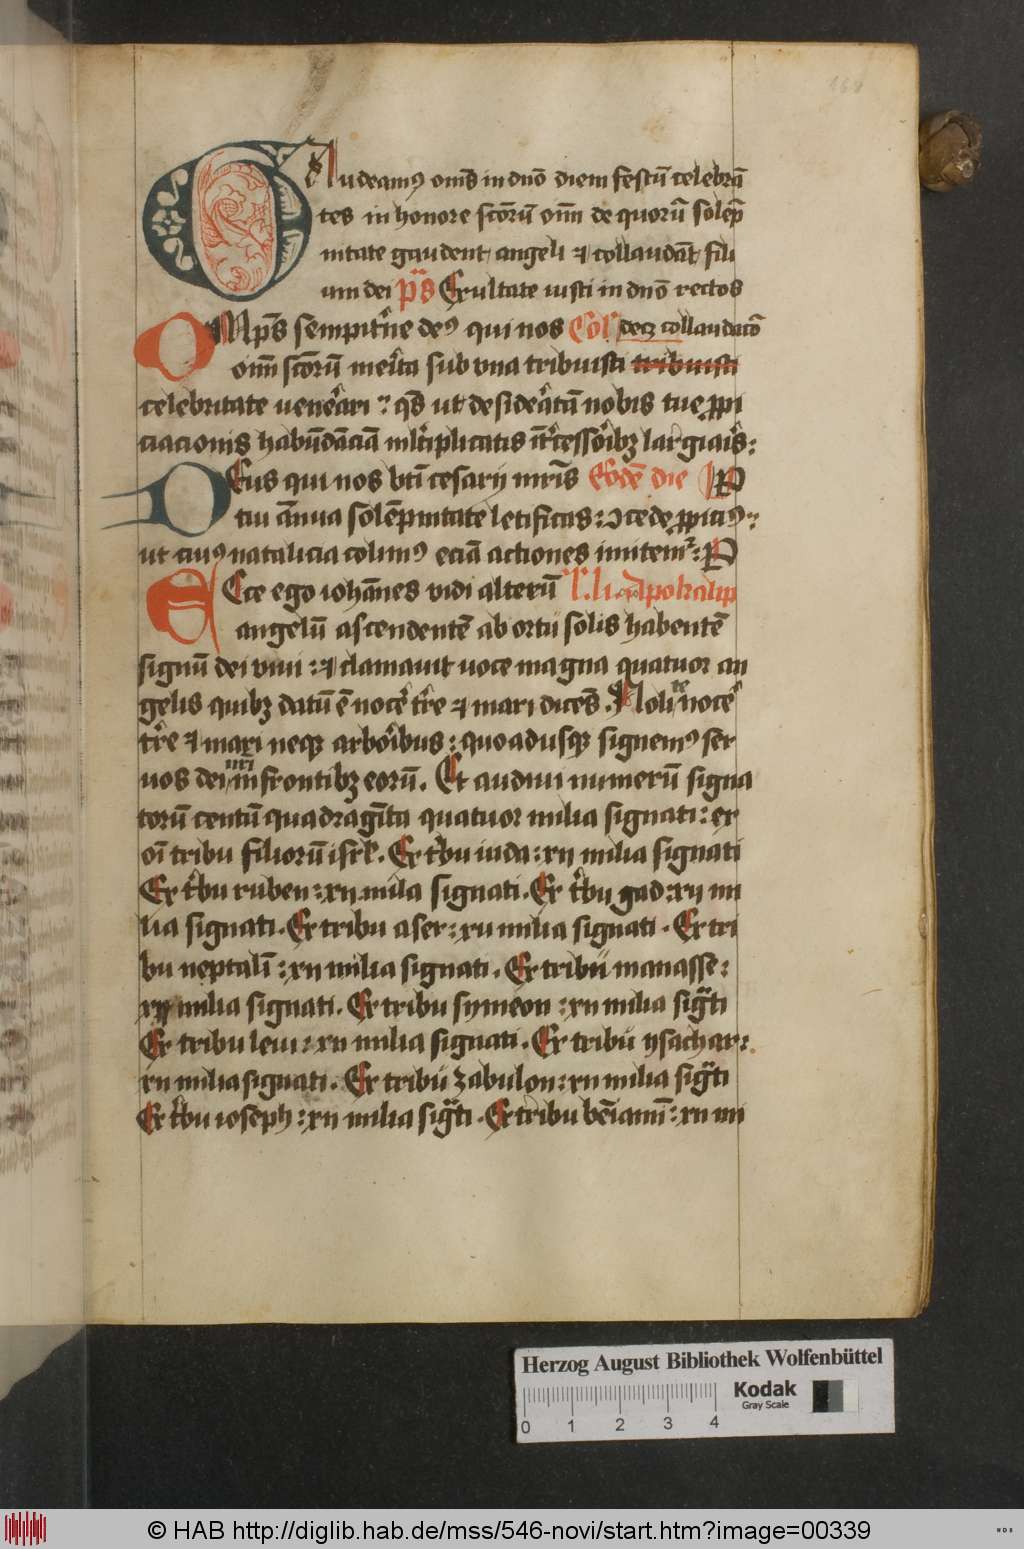 Gaudeamꝰ om̄s in dn̄o diem festū celebrā
tes in honore sctōrū om̄i de quorū solēp
nitate gaudent angeli ⁊ collaudāt fili
um dei p̄s Exultate iusti in dn̄o rectos
OMps̄ sempitne deꝰ qui nos Coll decꝫ collaudatō
om̄i sctōrū merita sub vna tribuisti tribuisti
celebritate uenerari : qs̄ ut desideratā nobis tue ꝓpi
ciacionis habūdāciā mltiplicatis īt̄cessoribꝫ largiaris :
DEus qui nos bt̄i cesarij mr̄is Eodē die
tui ānua solēpnitate letificas : ↄcede ꝓpiciꝰ :
ut cuiꝰ natalicia colimꝰ eciā actiones imitemr : P
ECce ego iohānes vidi alterū L li Apokalip
angelū ascendentē ab ortu solis habentē
signū dei viui : ⁊ clamauit uoce magna quatuor an
gelis quibꝫ datū ē nocere tr̄e ⁊ mari dicēs . Nolite nocere
tr̄e ⁊ mari neqꝫ arboribus : quoadusqꝫ signemꝰ ser
uos dei nr̄i in frontibꝫ eorū . Et audiui numerū signa
torū centū quadragīta quatuor milia signati : ex
oī tribu filiorū isrl . Ex tbu iuda : xij milia signati
Ex tbu ruben : xij mila signati . Ex tbu gad : xij mi
lia signati . Ex tribu aser : xij milia signati . Ex tri
bu neptalī : xij milia signati . Ex tribu manasse :
xij milia signati . Ex tribu symeon : xij milia sigti
Ex tribu leui : xij milia signati . Ex tribu ysachar :
xij milia signati . Ex tribu zabulon : xij milia sigti
Ex tbu ioseph : xij milia sigti . Ex tribu bēiamī : xij mi
Herzog August Bibliothek Wolfenbüttel
Kodak
Gray Scale
0 1 2 3 4
© HAB http://diglib.hab.de/mss/546-novi/start.htm?image=00339